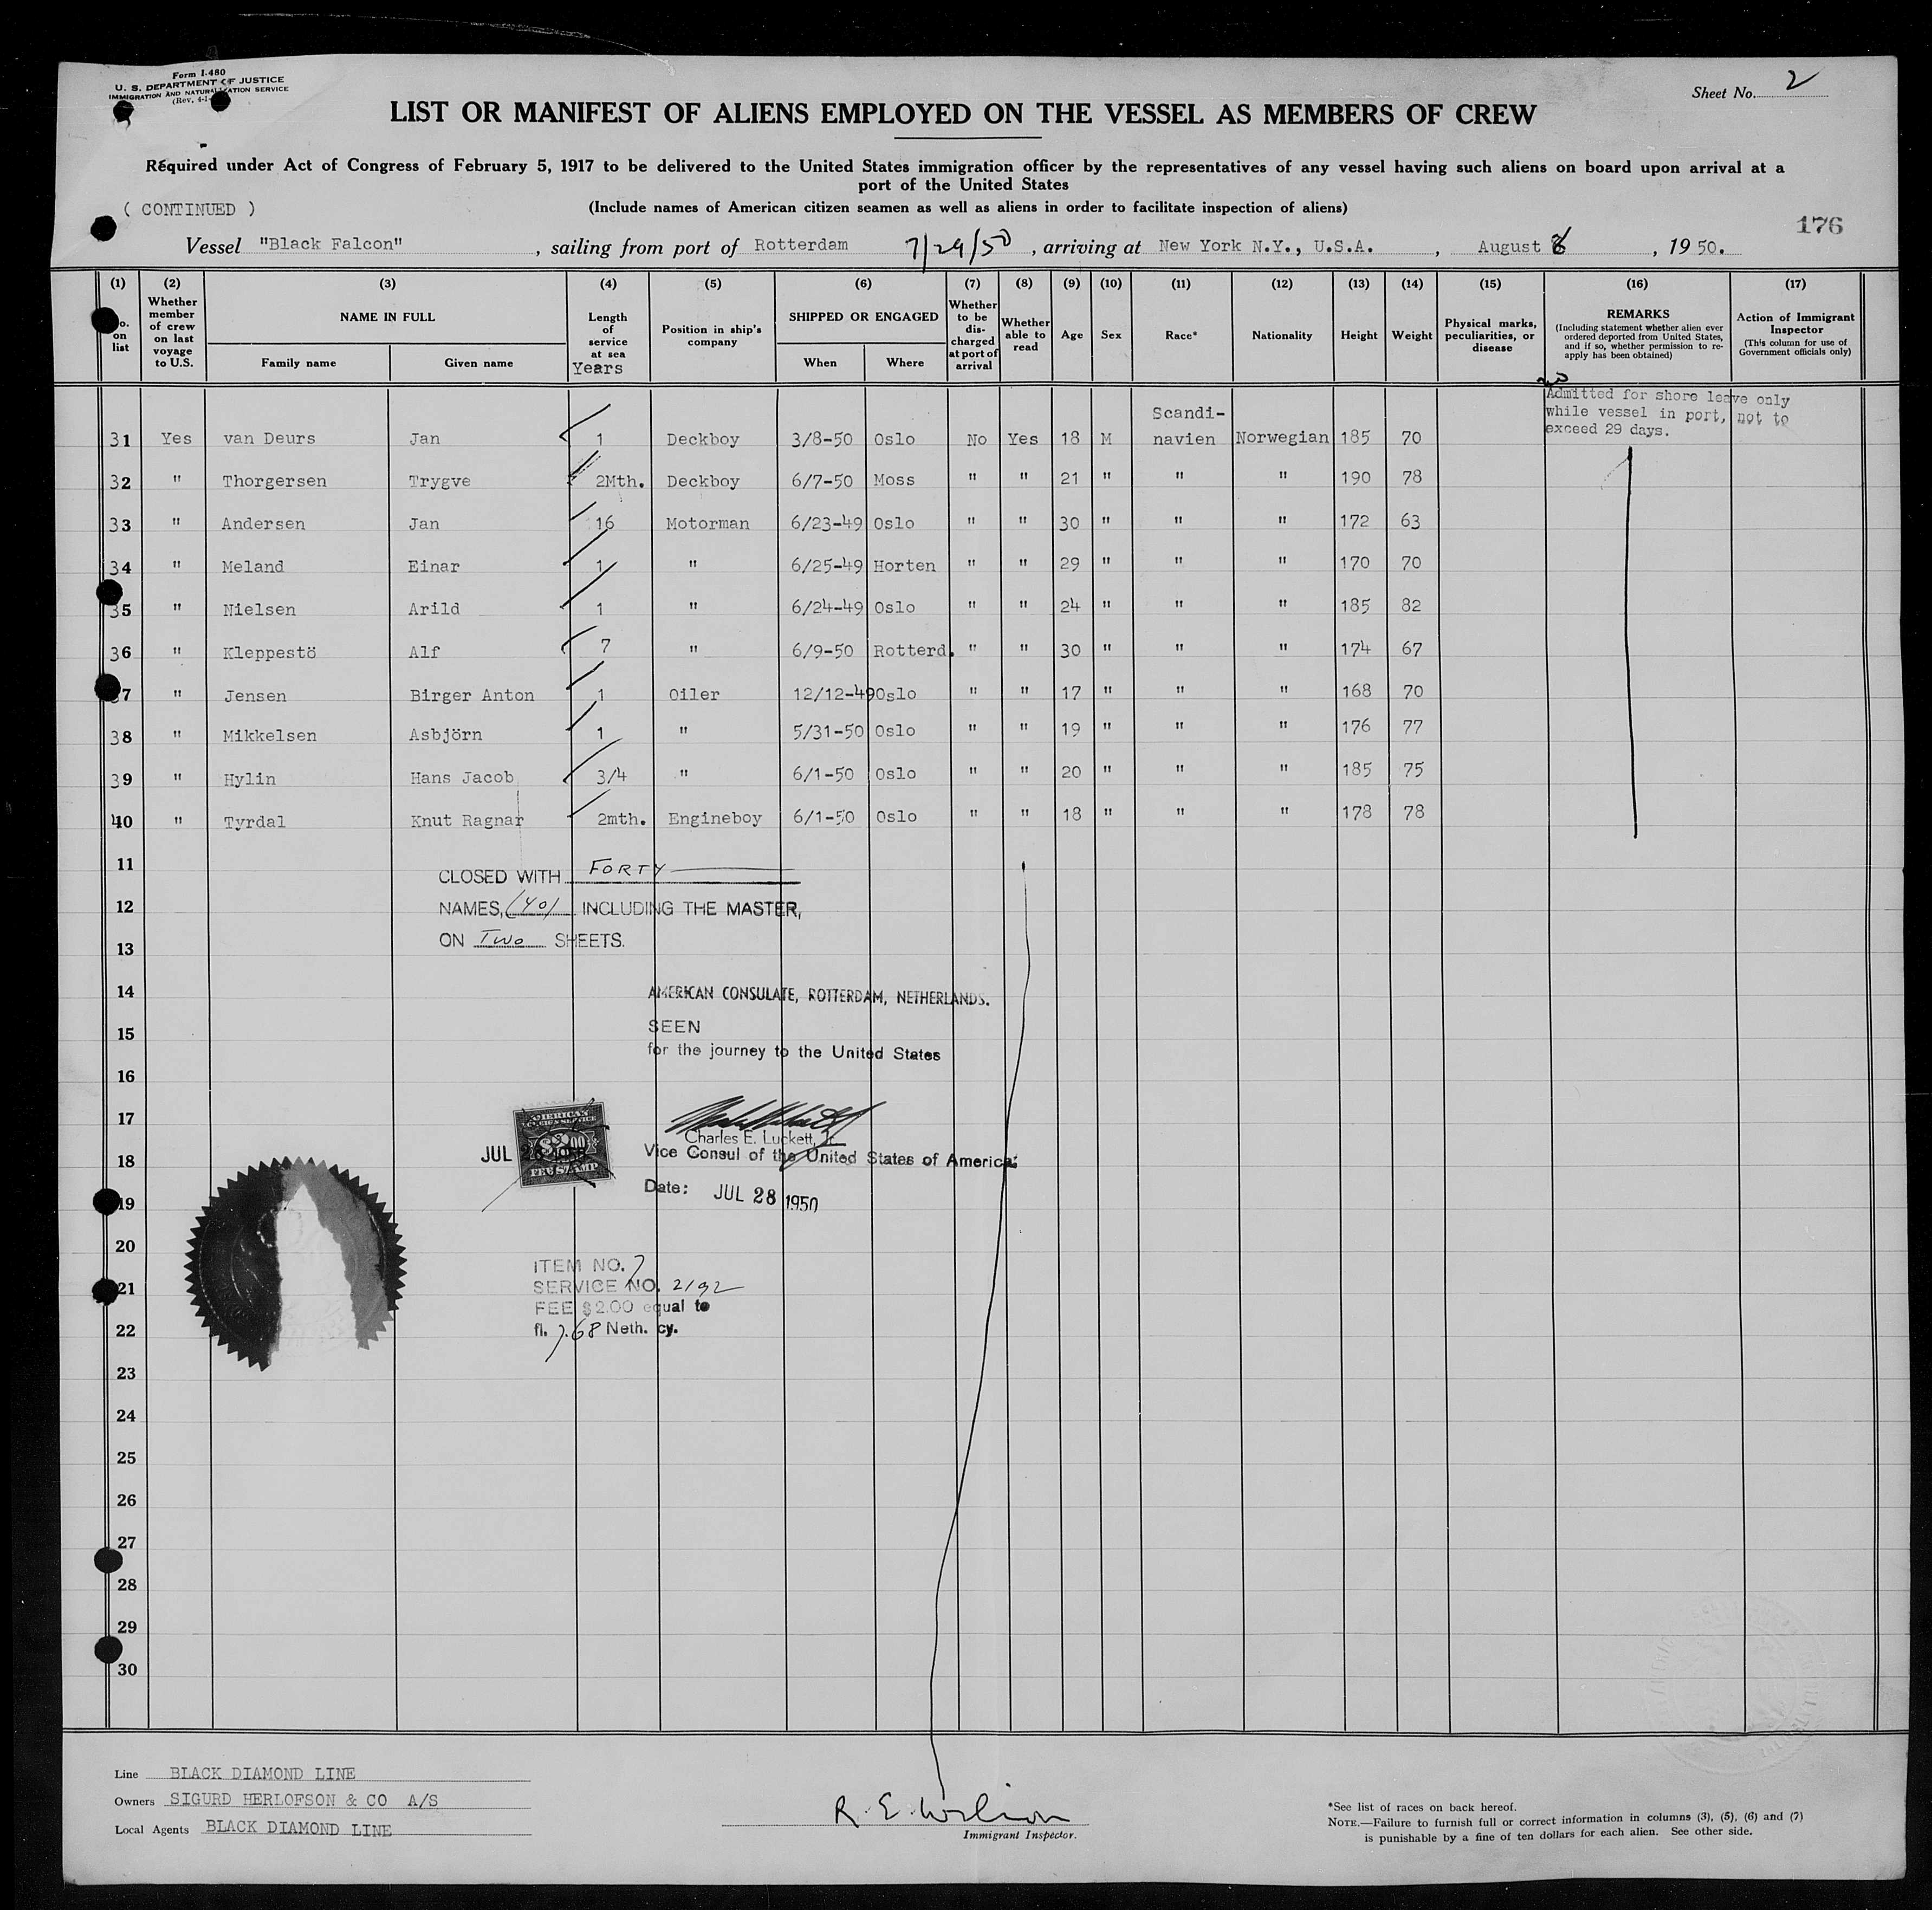 Form I-480
U. S. DEPARTMENT OF JUSTICE
IMMIGRATION AND NATURALIZATION SERVICE
(Rev. 4-1-
Sheet No. 2
LIST OR MANIFEST OF ALIENS EMPLOYED ON THE VESSEL AS MEMBERS OF CREW
Required under Act of Congress of February 5, 1917 to be delivered to the United States immigration officer by the representatives of any vessel having such aliens on board upon arrival at a
port of the United States
( CONTINUED ) (Include names of American citizen seamen as well as aliens in order to facilitate inspection of aliens)
176
Vessel "Black Falcon", sailing from port of Rotterdam 7/29/50, arriving at New York N.Y., U.S.A., August 8, 1950.
(1) (2) (3) (4) (5) (6) (7) (8) (9) (10) (11) (12) (13) (14) (15) (16) (17)
o. on list
Whether member of crew on last voyage to U.S.
NAME IN FULL
Family name Given name
Length of service at sea Years
Position in ship's company
SHIPPED OR ENGAGED
When Where
Whether to be discharged at port of arrival
Whether able to read
Age Sex Race* Nationality Height Weight
Physical marks, peculiarities, or disease
REMARKS
(Including statement whether alien ever ordered deported from United States, and if so, whether permission to re-apply has been obtained)
Action of Immigrant Inspector
(This column for use of Government officials only)
Admitted for shore leave only
while vessel in port, not to
exceed 29 days.
31 Yes van Deurs Jan 1 Deckboy 3/8-50 Oslo No Yes 18 M Scandi-navien Norwegian 185 70
32 " Thorgersen Trygve 2Mth. Deckboy 6/7-50 Moss " " 21 " " " 190 78
33 " Andersen Jan 16 Motorman 6/23-49 Oslo " " 30 " " " 172 63
34 " Meland Einar 1 " 6/25-49 Horten " " 29 " " " 170 70
35 " Nielsen Arild 1 " 6/24-49 Oslo " " 24 " " " 185 82
36 " Kleppestö Alf 7 " 6/9-50 Rotterd. " " 30 " " " 174 67
37 " Jensen Birger Anton 1 Oiler 12/12-49 Oslo " " 17 " " " 168 70
38 " Mikkelsen Asbjörn 1 " 5/31-50 Oslo " " 19 " " " 176 77
39 " Hylin Hans Jacob 3/4 " 6/1-50 Oslo " " 20 " " " 185 75
40 " Tyrdal Knut Ragnar 2mth. Engineboy 6/1-50 Oslo " " 18 " " " 178 78
11
CLOSED WITH FORTY
12
NAMES, (40) INCLUDING THE MASTER,
ON Two SHEETS.
13
14
AMERICAN CONSULATE, ROTTERDAM, NETHERLANDS.
15
SEEN
for the journey to the United States
16
17
AMERICAN
$2.00
FEE STAMP
JUL 28 1950
Charles E. Luckett, Jr.
18
Vice Consul of the United States of America:
Date: JUL 28 1950
19
20
ITEM NO. 7
21
SERVICE NO. 2192
FEE $2.00 equal to
22
fl. 7.68 Neth. cy.
23
24
25
26
27
28
29
30
Line BLACK DIAMOND LINE
Owners SIGURD HERLOFSON & CO A/S
Local Agents BLACK DIAMOND LINE
R. E. Wilson
Immigrant Inspector.
*See list of races on back hereof.
NOTE.—Failure to furnish full or correct information in columns (3), (5), (6) and (7)
is punishable by a fine of ten dollars for each alien. See other side.